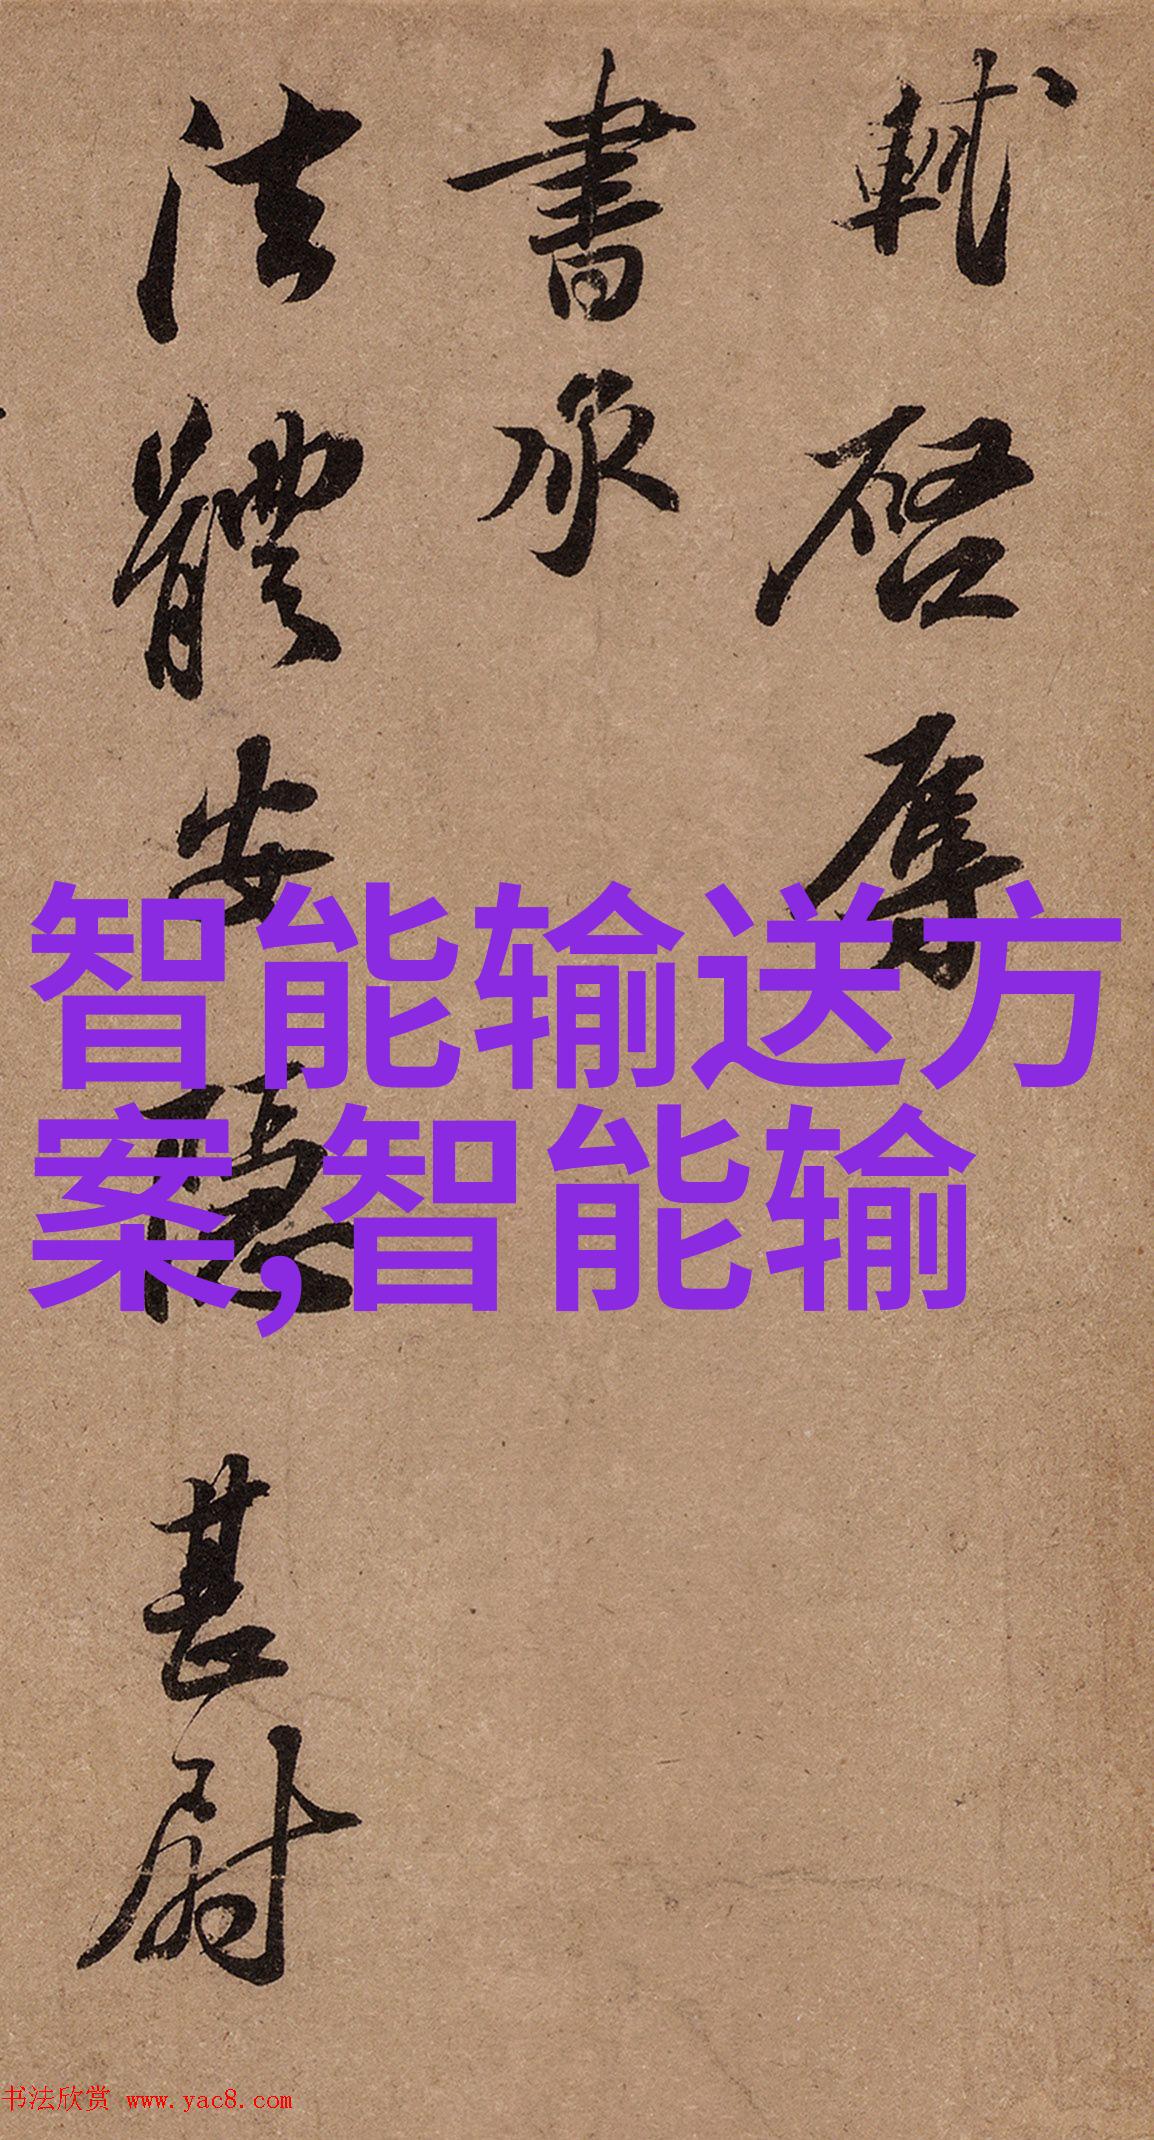 軾啓辱
書承
法體安隱甚尉
智能输送方
案,智能输
书法欣赏 www.yac8.com